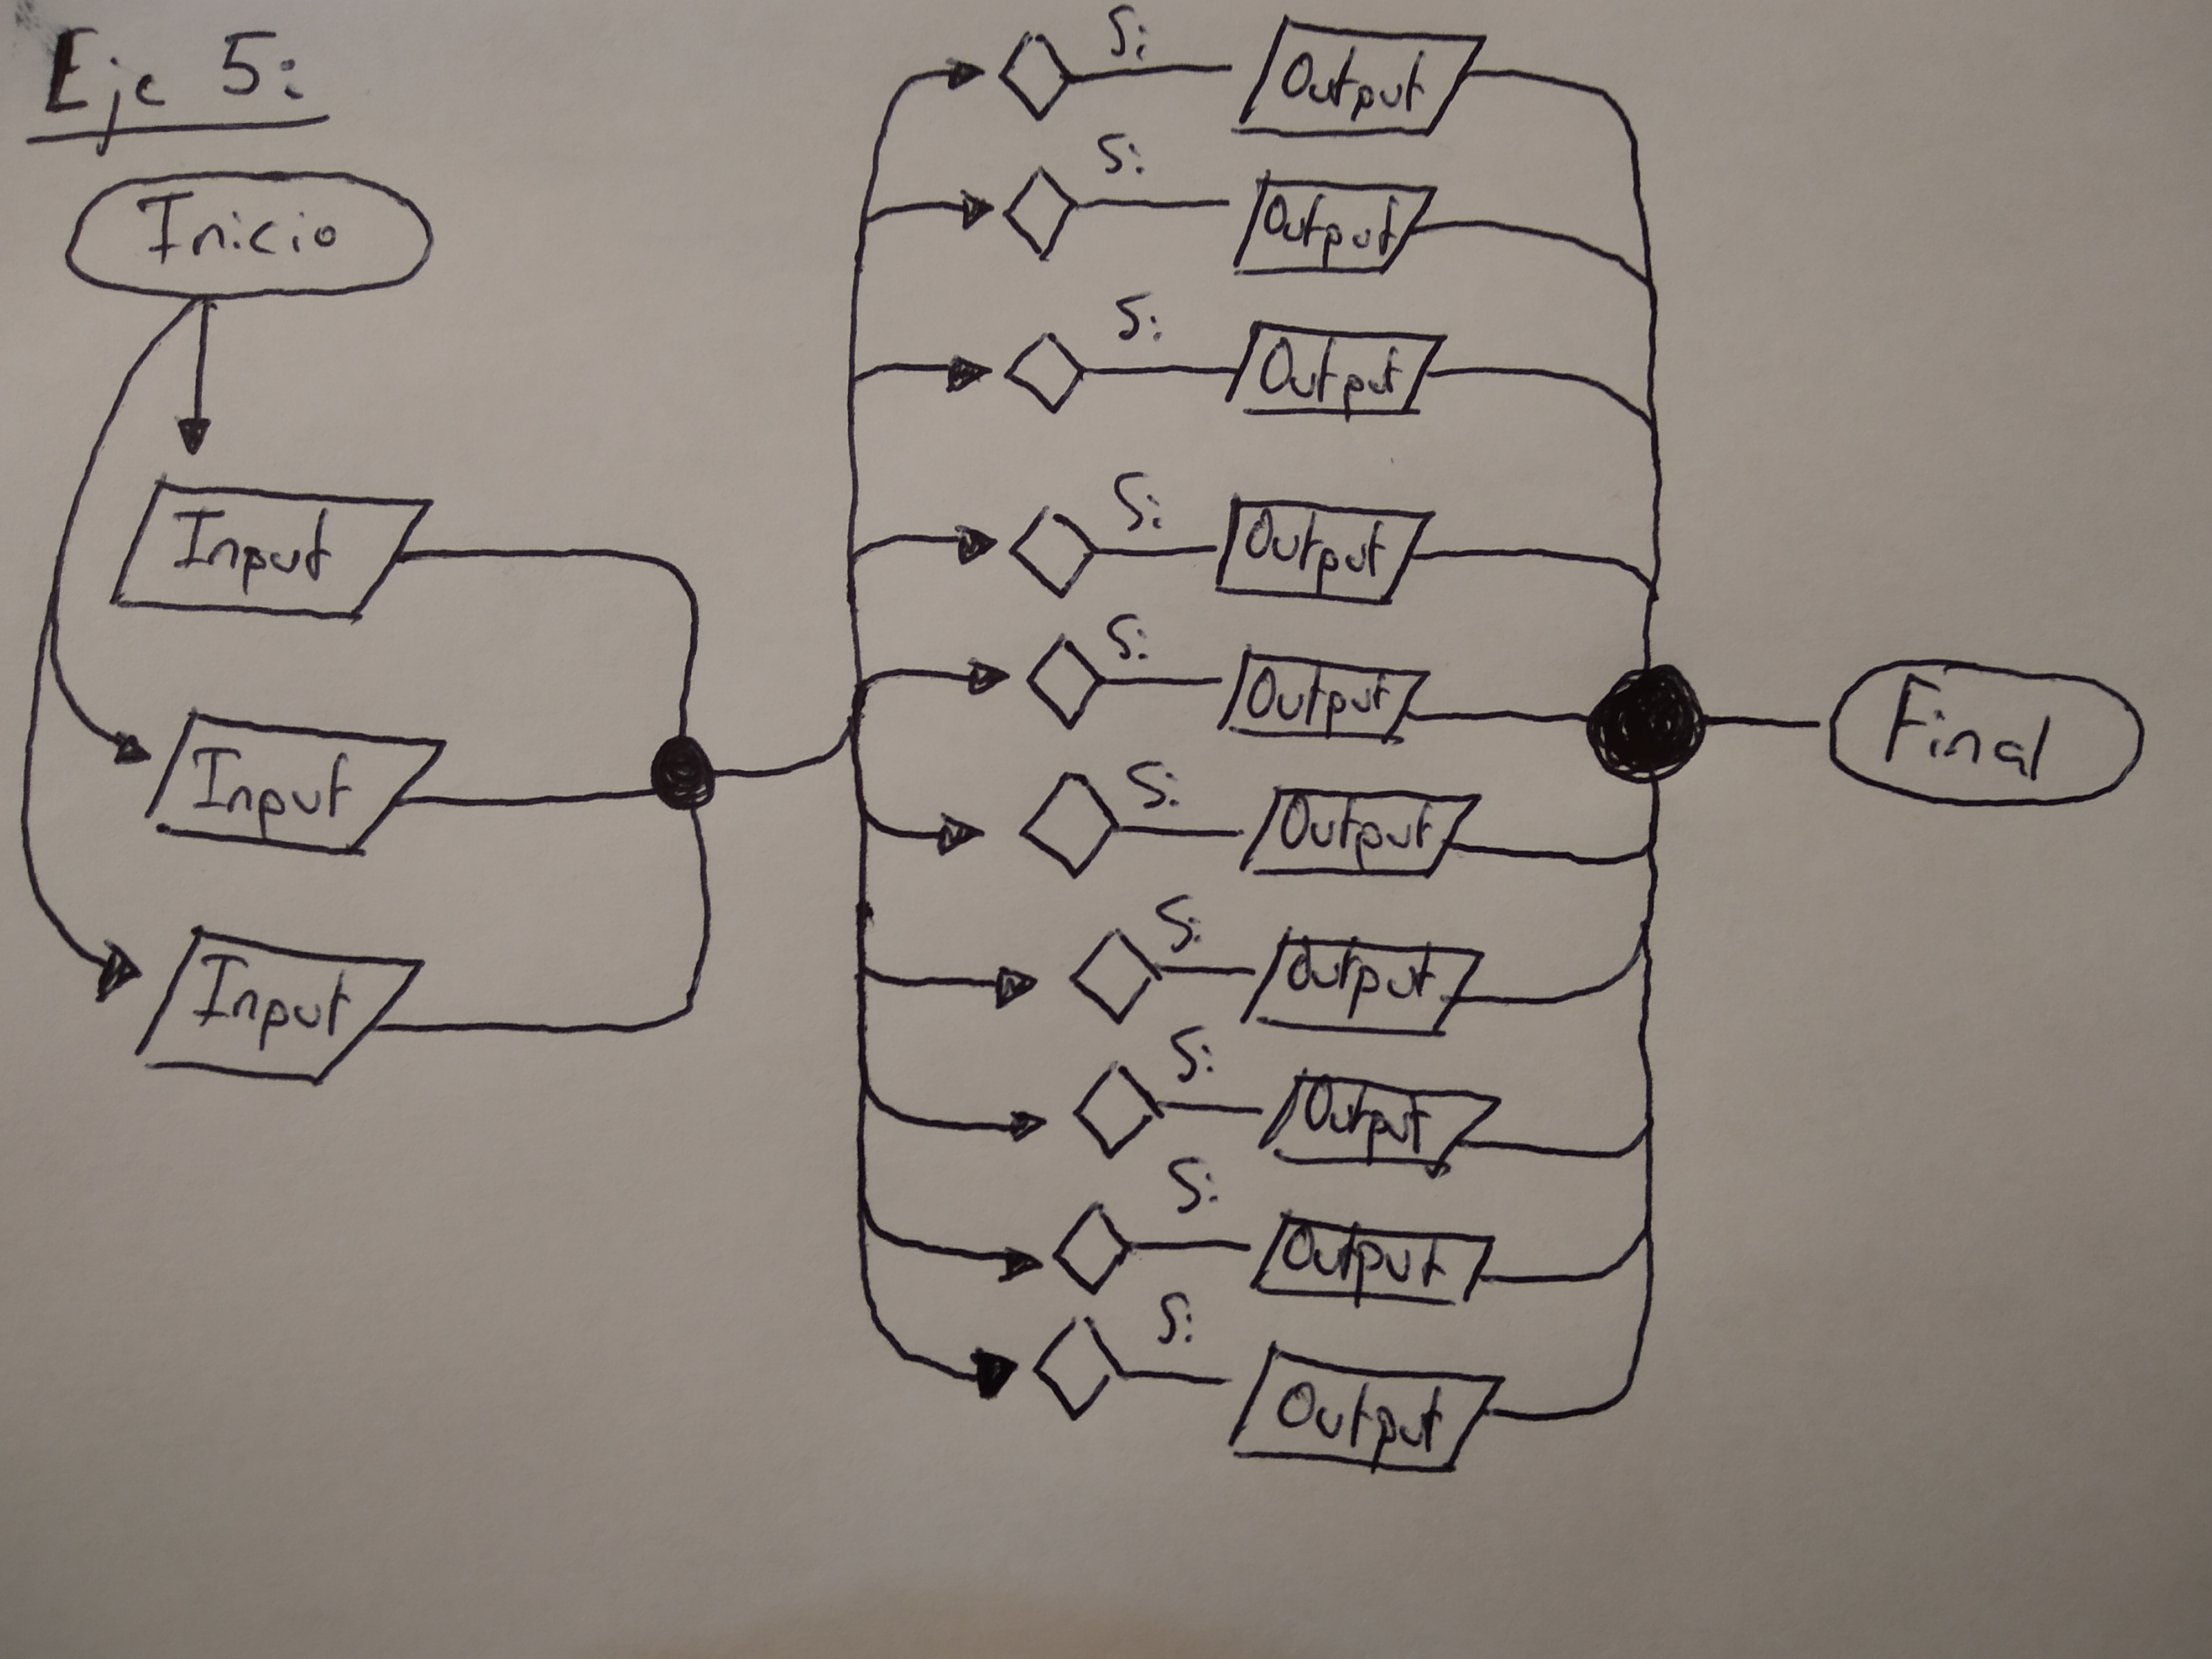 Eje 5:
Inicio
Input
Input
Input
Si
Output
Si
Output
Si
Output
Si
Output
Si
Output
Si
Output
Si
Output
Si
Output
Si
Output
Si
Output
Final